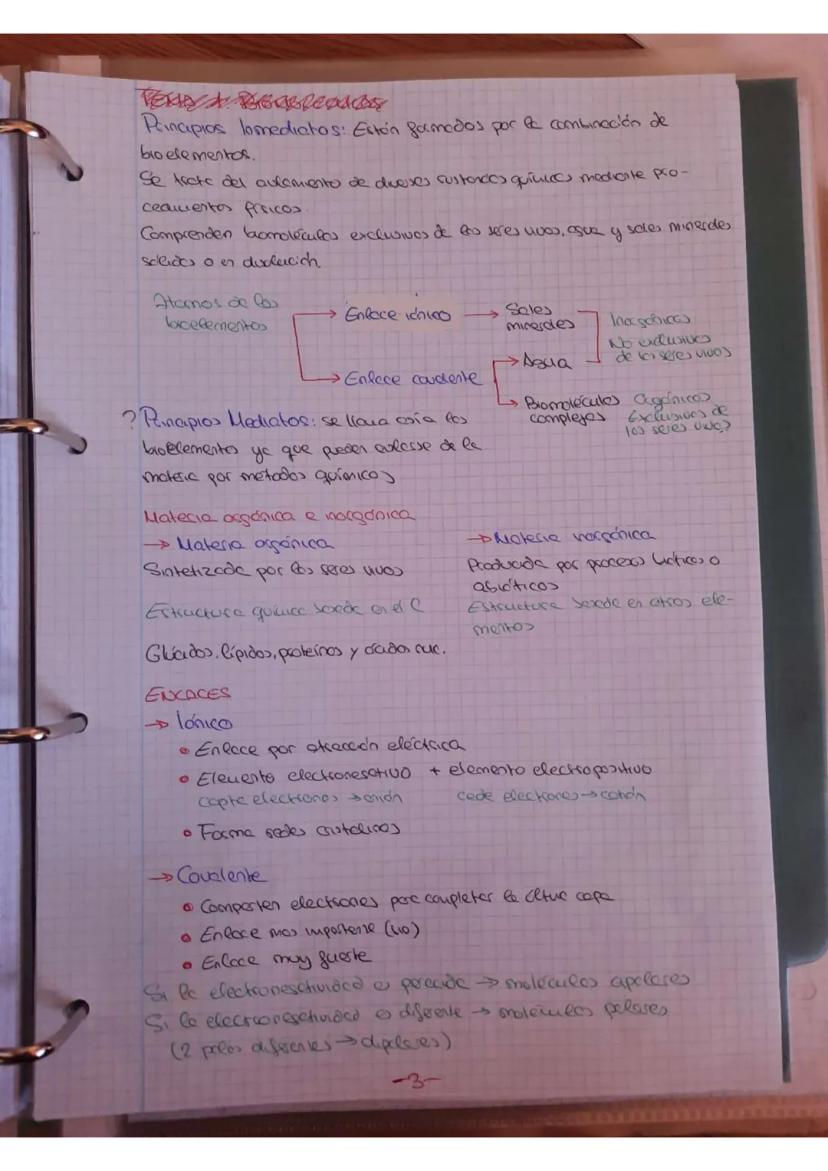 Principios Inmediatos: Están formados por la combinación de
bioelementos.
Se trata del aislamiento de diversas sustancias químicas mediante pro-
cedimientos físicos.
Comprenden biomoléculas exclusivas de los seres vivos, agua y sales minerales
sólidas o en disolución.
Átomos de los
bioelementos
→ Enlace iónico → Sales
minerales
Inorgánicas
No exclusivas
de los seres vivos
→ Enlace covalente
→ Agua
→ Biomoléculas
complejas
Orgánicas
Exclusivas de
los seres vivos
? Principios Mediatos: se llama así a los
bioelementos ya que pueden aislarse de la
materia por métodos químicos
Materia orgánica e inorgánica
→ Materia orgánica
Sintetizada por los seres vivos
Estructura química basada en el C
Glúcidos, lípidos, proteínas y ácidos nuc.
→ Materia inorgánica
Producida por procesos bióticos o
abióticos
Estructura basada en otros ele-
mentos
ENLACES
→ Iónico
• Enlace por atracción eléctrica
• Elemento electronegativo + elemento electropositivo
capta electrones → anión cede electrones → catión
• Forma redes cristalinas
→ Covalente
• Comparten electrones para completar la última capa
• Enlace mas importante (bio)
• Enlace muy fuerte
Si la electronegatividad es parecida → moléculas apolares
Si la electronegatividad es diferente → moléculas polares
(2 polos diferentes → dipolares)
-3-